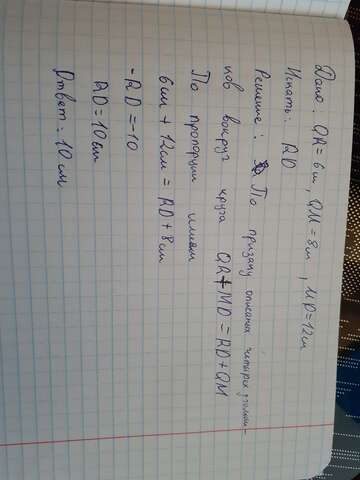 Дано: QR = 6см, QM = 8см, MD = 12см
Искать: RD
Решение: По признаку описаных четырехугольни-
ков вокруг круга QR + MD = RD + QM
По пропорции имеем
6см + 12см = RD + 8см
- RD = -10
RD = 10см
Ответ: 10 см